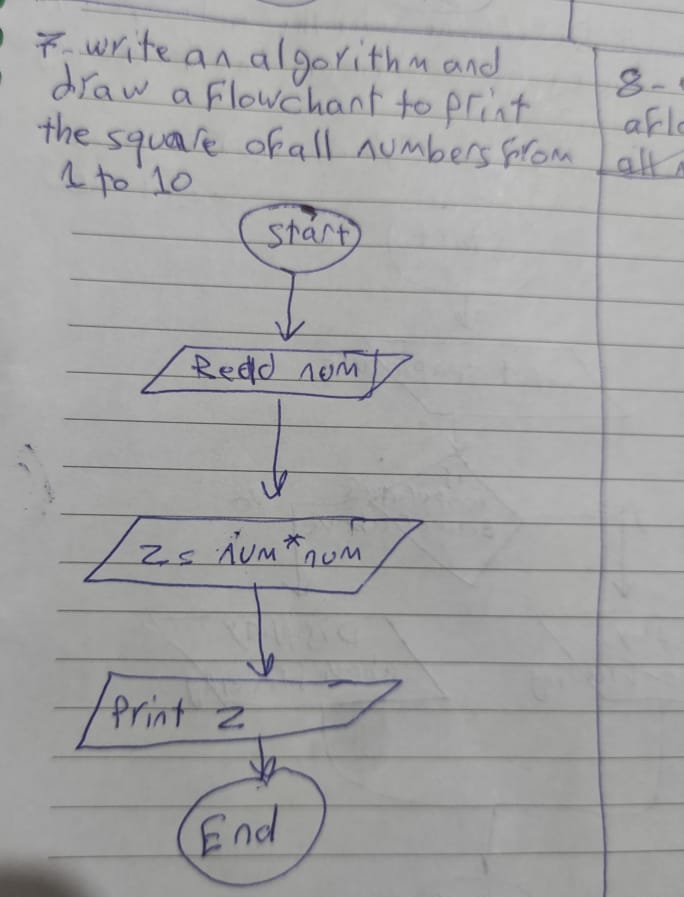 7- write an algorithm and
draw a Flowchart to print
the square of all numbers from
1 to 10
8-
aFlo
all
start
Read num
Z = num * num
Print Z
End